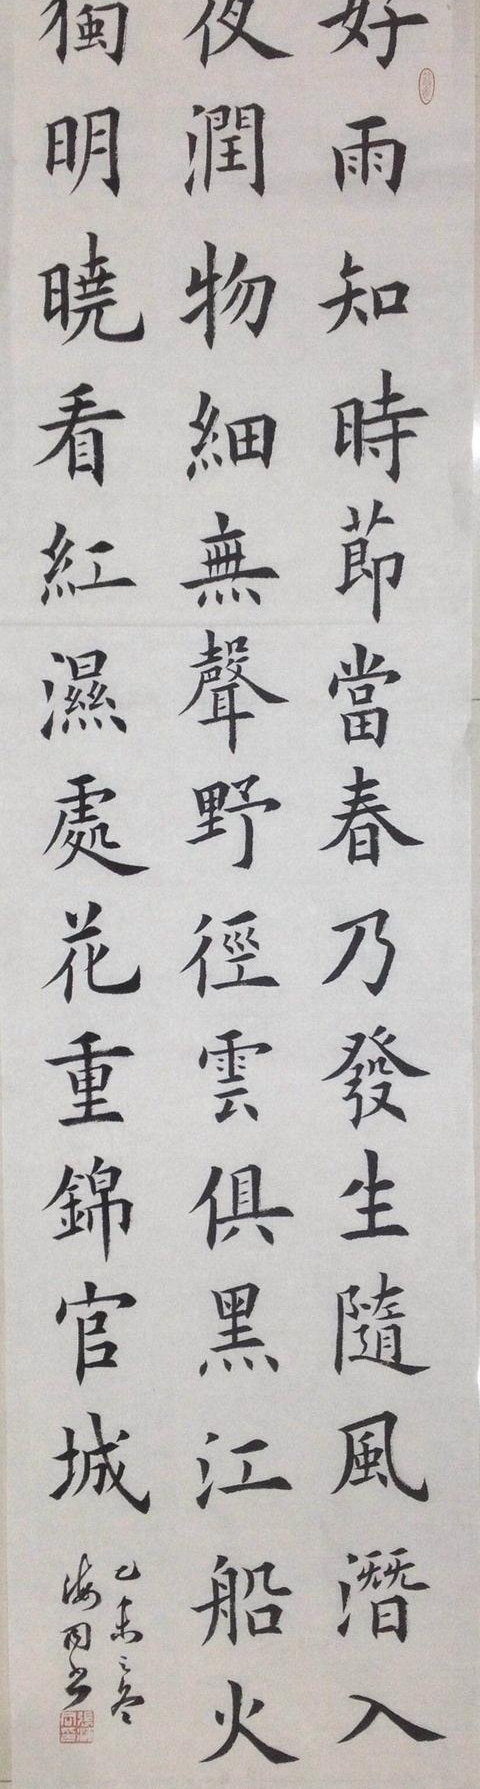 好雨知時節當春乃發生隨風潛入
夜潤物細無聲野徑雲俱黑江船火
獨明曉看紅濕處花重錦官城
乙未之冬
海同书